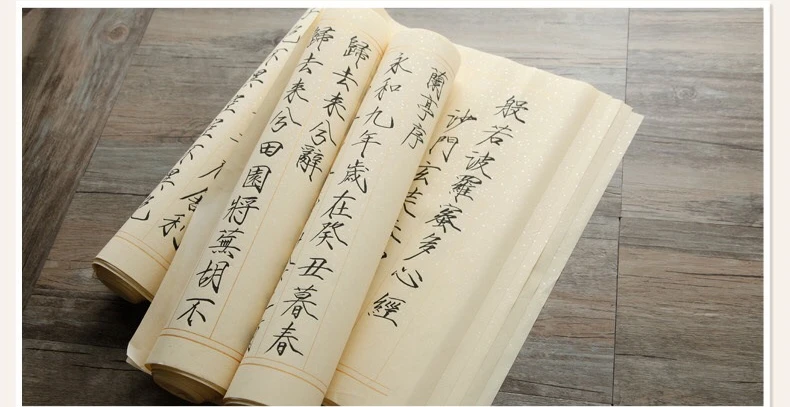 般若波羅蜜多心經
沙門玄奘
蘭亭序
永和九年歲在癸丑暮春
歸去來兮辭
歸去來兮田園將蕪胡不
舍利